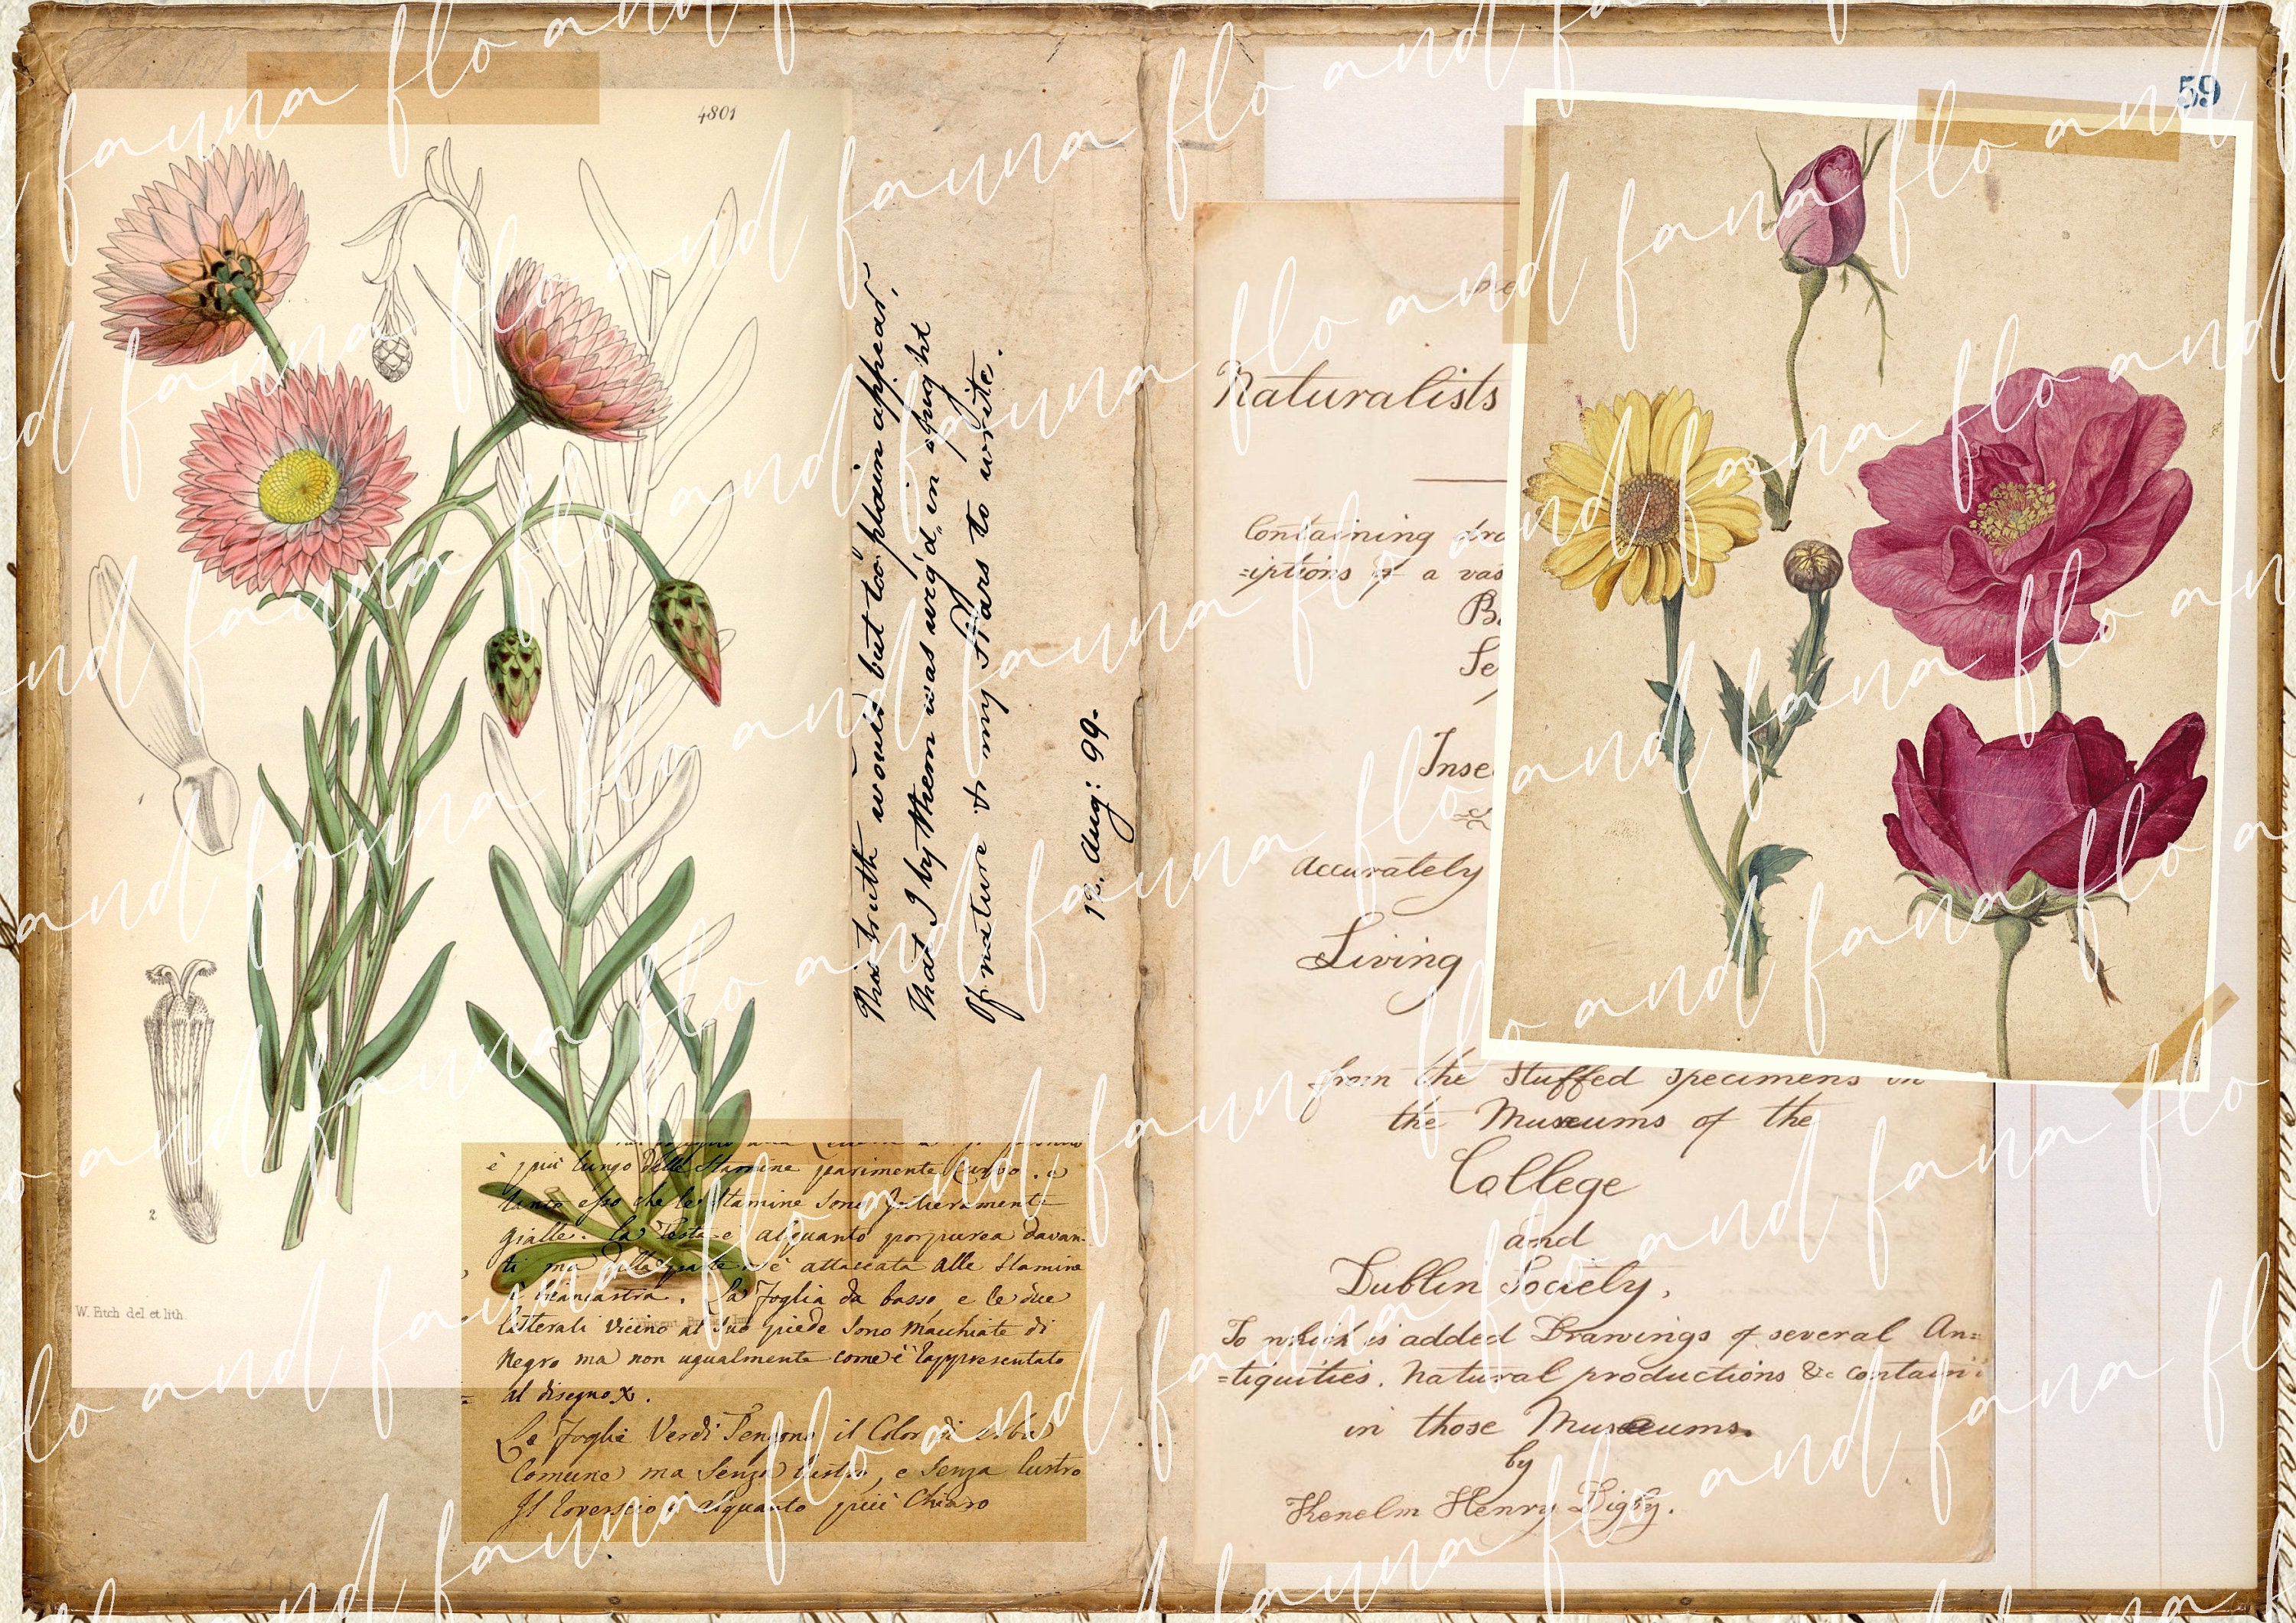 4801
This truth would but too plain appear,
That I by them was urg'd, in spight
Of nature & my stars to write.
12. Aug: 99.
2
W. Fitch del et lith.
è più lungo delle stamine parimente curvo. e
tanto esso che le stamine sono interamente
gialle. La Testa è alquanto porpurea davan-
ti ma dalla parte è attaccata alle stamine
è biancastra. La foglia da basso, e le due
latterali vicino al suo piede sono Macchiate di
Negro ma non ugualmente come è rappresentato
al disegno x.
Le foglie Verdi Tengono il Color di erba
Comune ma senza lustro, e senza lustro
Il roverscio è alquanto più Chiaro
59
Naturalists
Containing dra
=iptions of a vas
Inse
Accurately
Living
from the Stuffed Specimens in
the Museums of the
College
and
Dublin Society,
To which is added Drawings of several An=
=tiquities, Natural productions &c contain
in those Museums.
by
Kenelm Henry Digby.
flo and fauna